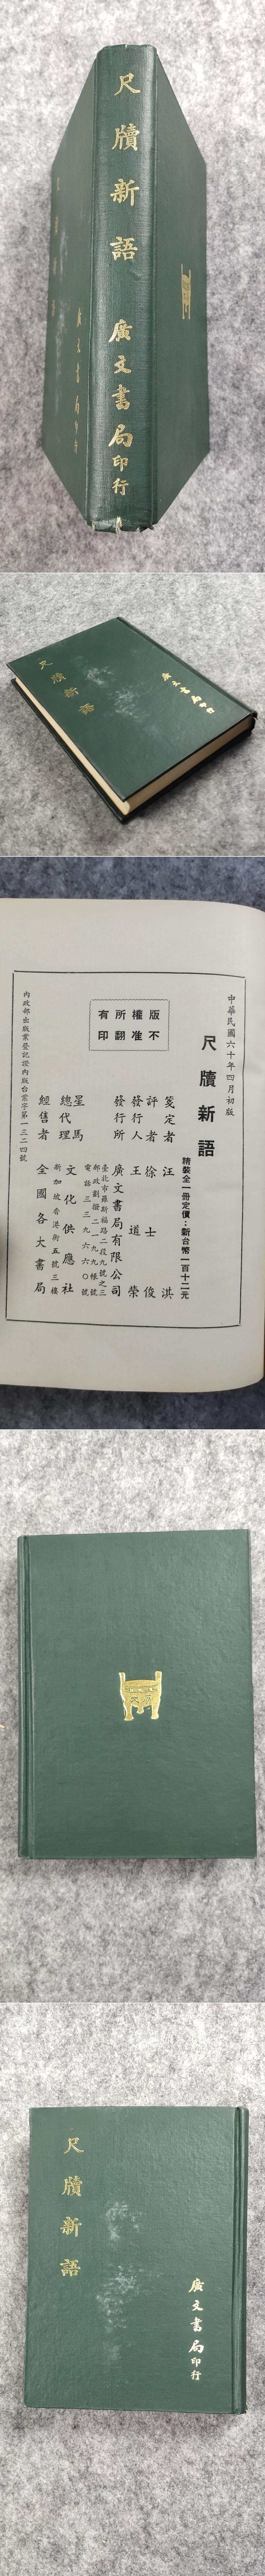 尺牘新語
廣文書局印行
尺牘新語
廣文書局印行
尺牘新語
廣文書局印行
中華民國六十年四月初版
尺牘新語
精裝全一冊定價：新台幣一百十二元
版權所有
不准翻印
箋定者 汪淇
評者 徐士俊
發行人 王道榮
發行所 廣文書局有限公司
臺北市羅斯福路二段九號之三
郵政劃撥二一九九帳號
電話三三九六六〇號
星馬總代理 文化供應社
新加坡香港街五號三樓
經售者 全國各大書局
內政部出版業登記證內版台業字第一三二四號
廣文
尺牘新語
廣文書局印行